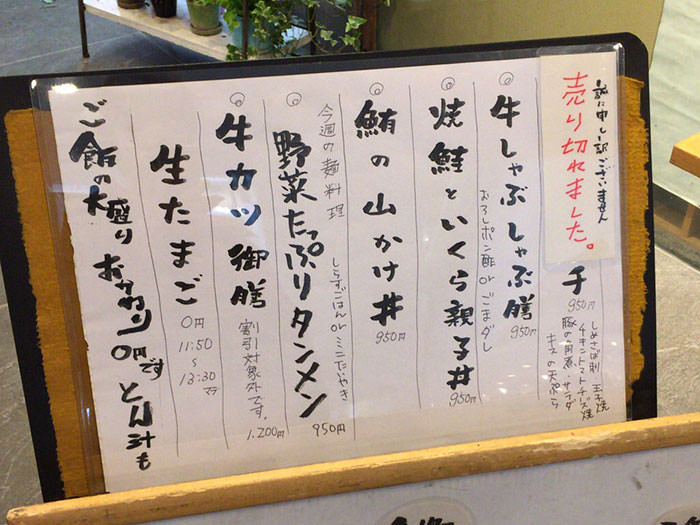 誠に申し訳ございません
売り切れました。
チ
950円
しめさば刺 玉子焼
チキントマトチーズ焼
豚の角煮・サラダ
キスの天ぷら
牛しゃぶしゃぶ膳
950円
おろしポン酢 or ごまダレ
焼鮭といくら親子丼
950円
鮪の山かけ丼
950円
今週の麺料理
しらすごはん or ミニたいやき
野菜たっぷりタンメン
950円
牛カツ御膳
割引対象外です。
1,200円
生たまご
0円
11:50
~
13:30
マデ
ご飯の大盛りおかわり0円です とん汁も